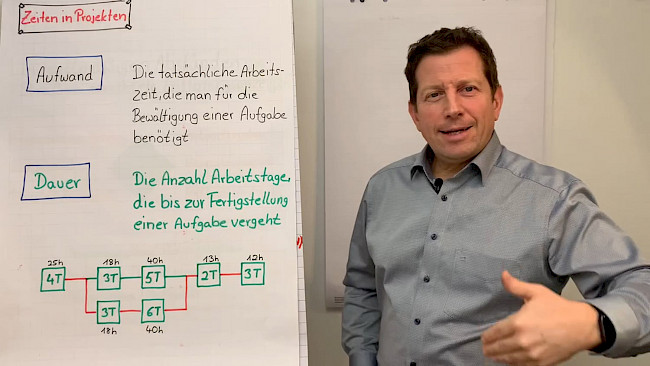 Zeiten in Projekten
Aufwand
Die tatsächliche Arbeits-
zeit, die man für die
Bewältigung einer Aufgabe
benötigt
Dauer
Die Anzahl Arbeitstage,
die bis zur Fertigstellung
einer Aufgabe vergeht
25h 18h 40h 13h 12h
4T 3T 5T 2T 3T
3T 6T
18h 40h